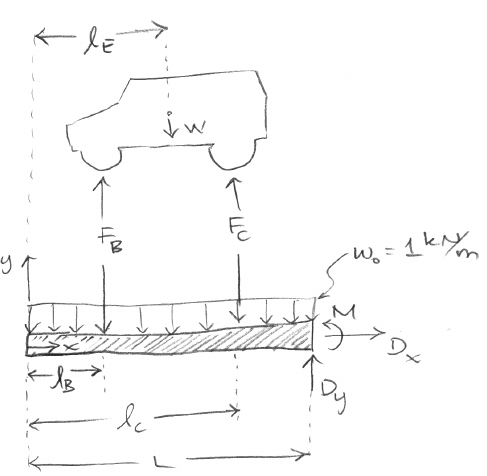 l_E
W
F_B
F_C
w_o = 1 kN/m
y
M
x
D_x
l_B
D_y
l_C
L